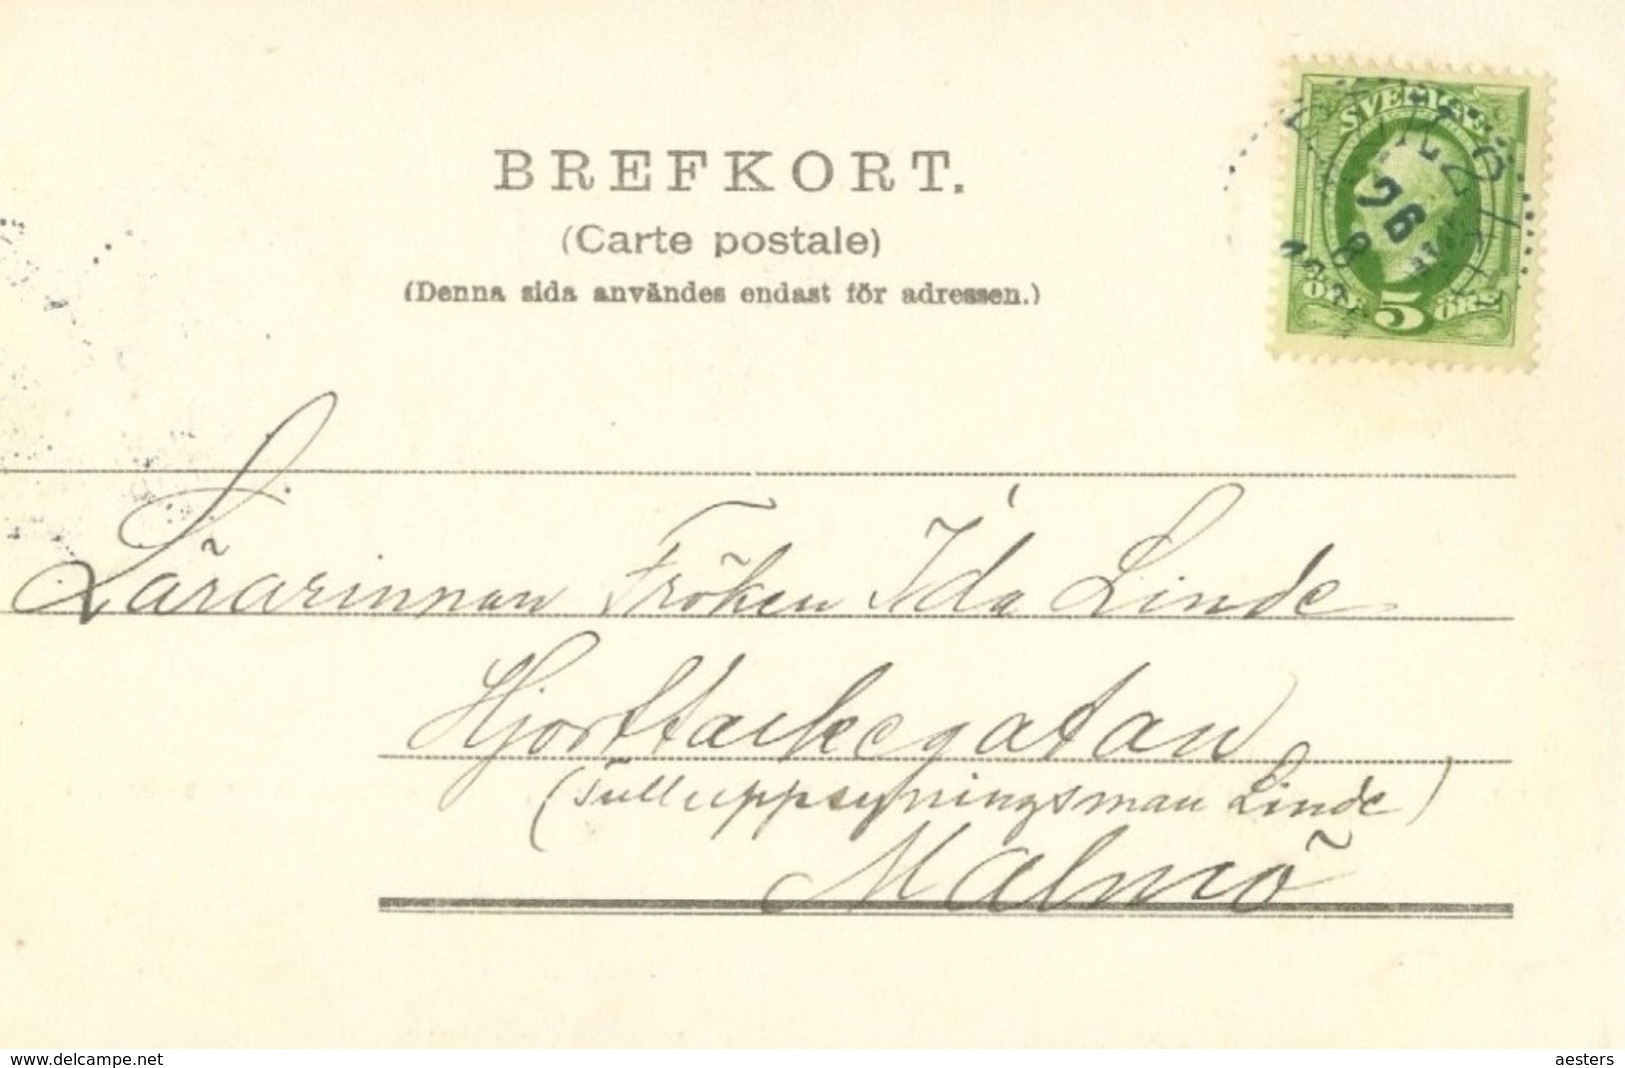 BREFKORT.
(Carte postale)
(Denna sida användes endast för adressen.)
SVERIGE
26
8
ÖRE 5 ÖRE
Lärarinnan Fröken Ida Linde
Hjorttackegatan
(Tulluppsyningsman Linde)
Malmö
www.delcampe.net
aesters